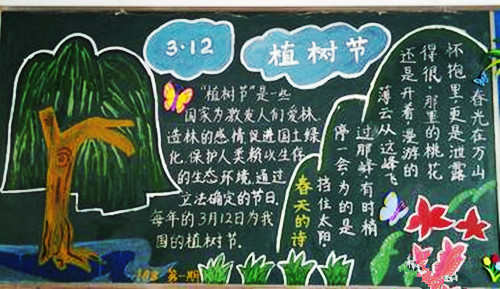 3·12
植树节
"植树节"是一些
国家为激发人们爱林、
造林的感情,促进国土绿
化,保护人类赖以生存
的生态环境,通过
立法确定的节日,
每年的3月12日为我
国的植树节。
春光在万山
怀抱里,更是泄露
得很。那里的桃花
还是开着;漫游的
薄云从这峰飞
过那峰,有时稍
停一会,为的是
挡住太阳
春天的诗
第一期